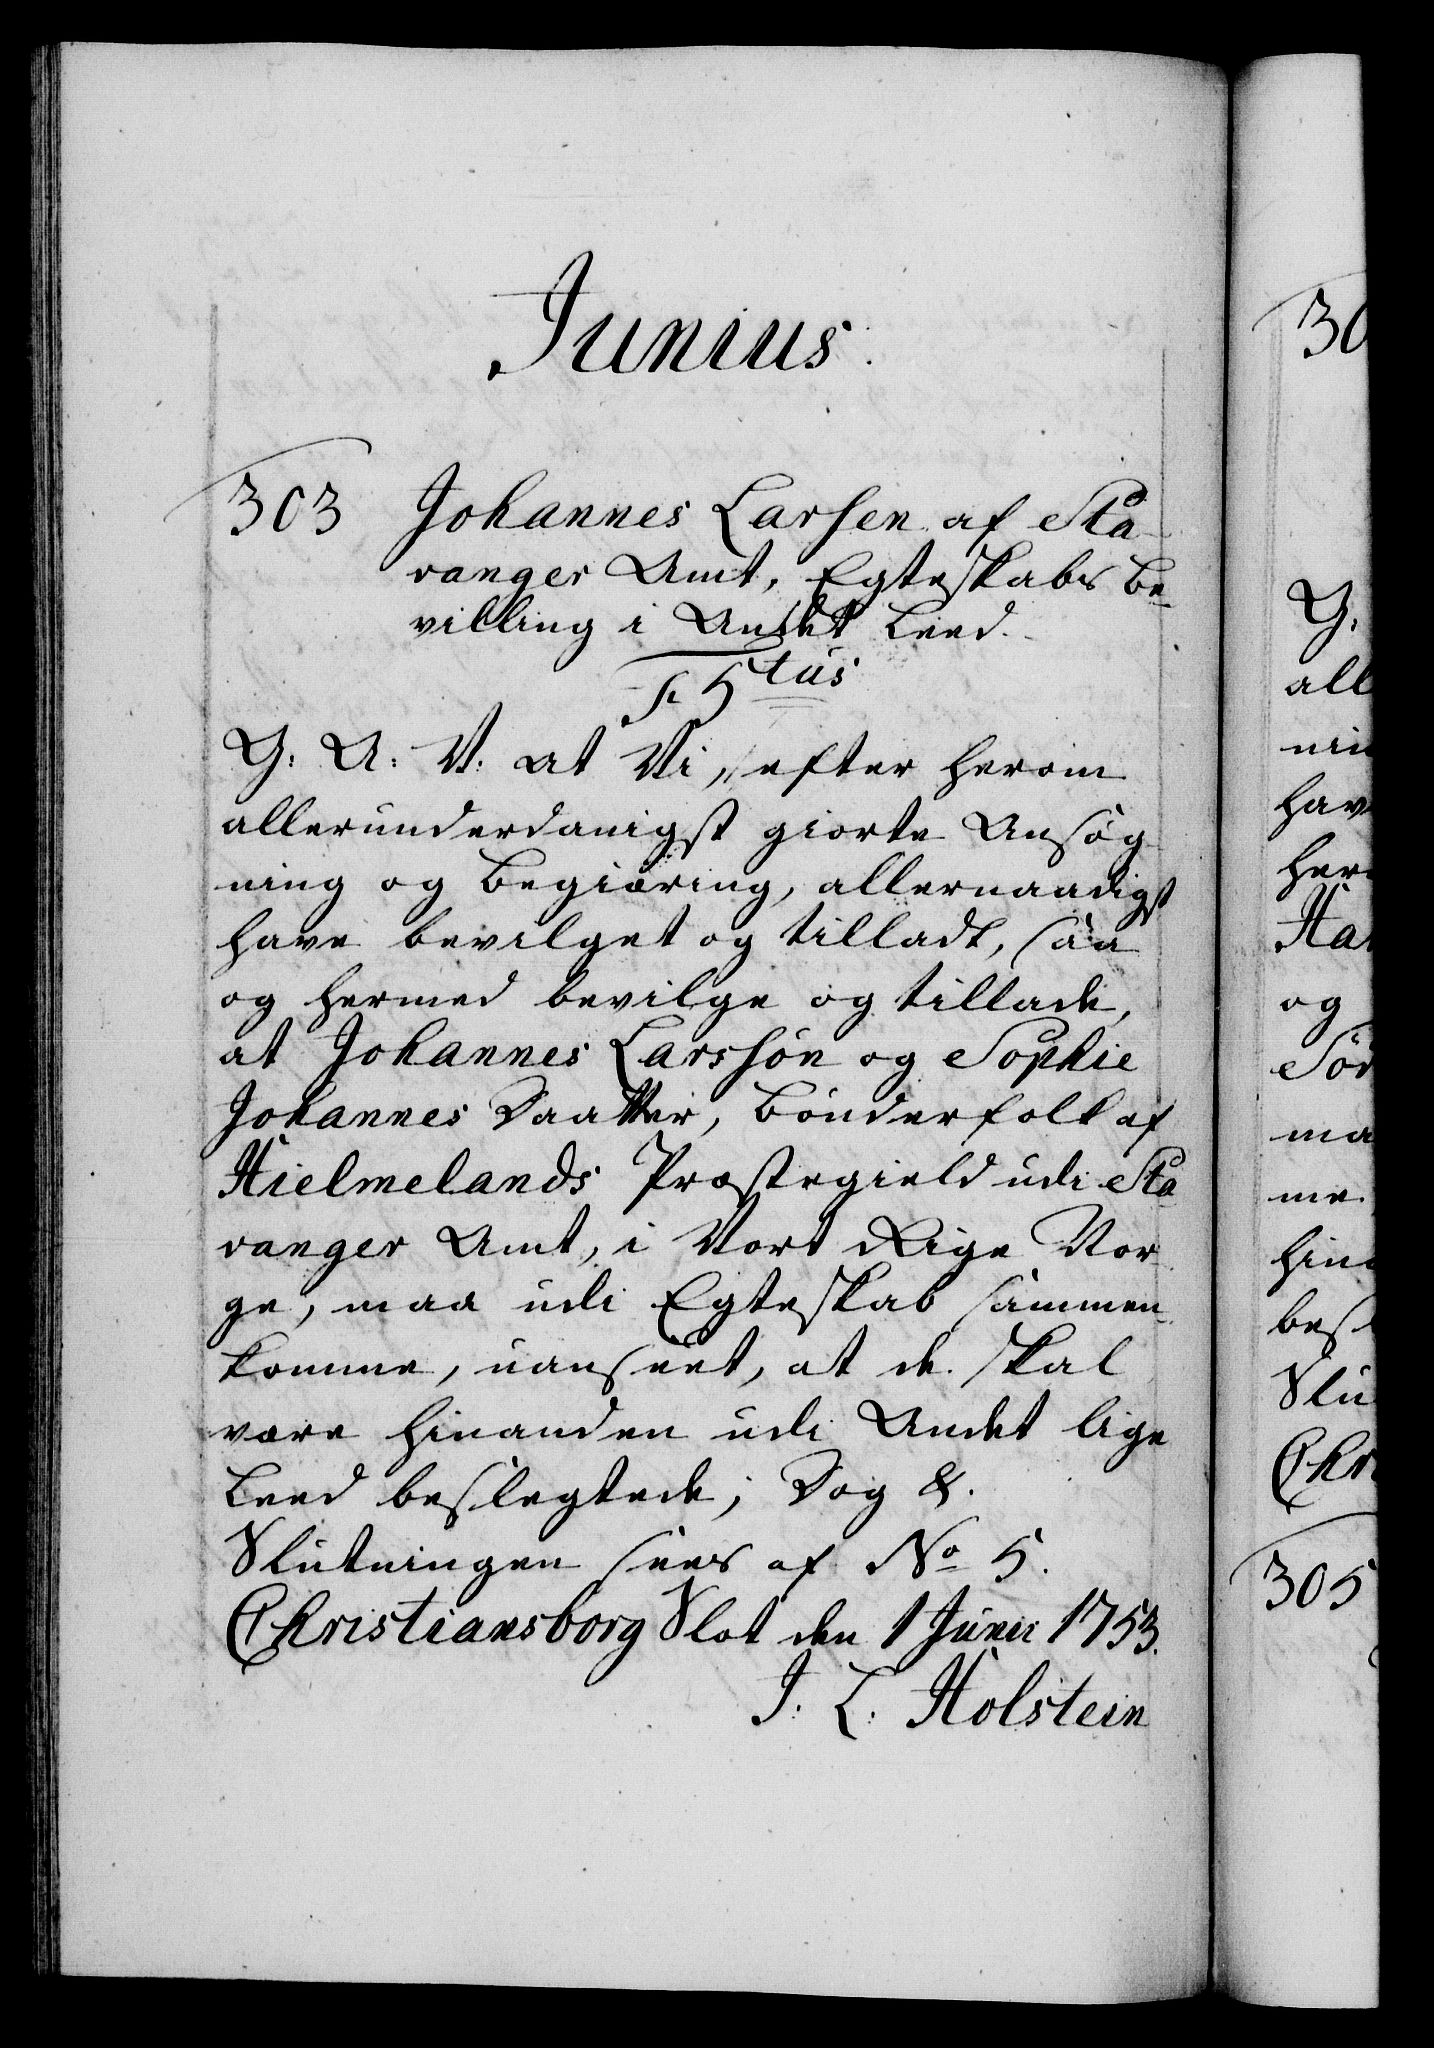 Junius.
303 Johannes Larsen af Sta-
vanger Amt, Egteskabs Be-
villing i Andet Leed.
F 5tus
G: A: V. at Vi, efter herom
allerunderdanigst giorte Ansøg-
ning og Begiæring, allernaadigst
have bevilget og tilladt, saa
og hermed bevilge og tillade,
at Johannes Larssøn og Sophie
Johannes Daatter, Bønderfolk af
Hielmelands Præstegield udi Sta-
vanger Amt, i Vort Rige Nor-
ge, maa udi Egteskab sammen-
komme, uanseet, at de skal
være hinanden udi Andet lige
Leed beslegtede; Dog &.
Slutningen sees af No 5.
Christiansborg Slot den 1 Junii 1753.
J. L. Holstein
30
G.
all
nin
hav
her
Ha
og
Sør
ma
me
hin
bes
Slu
Chr
305